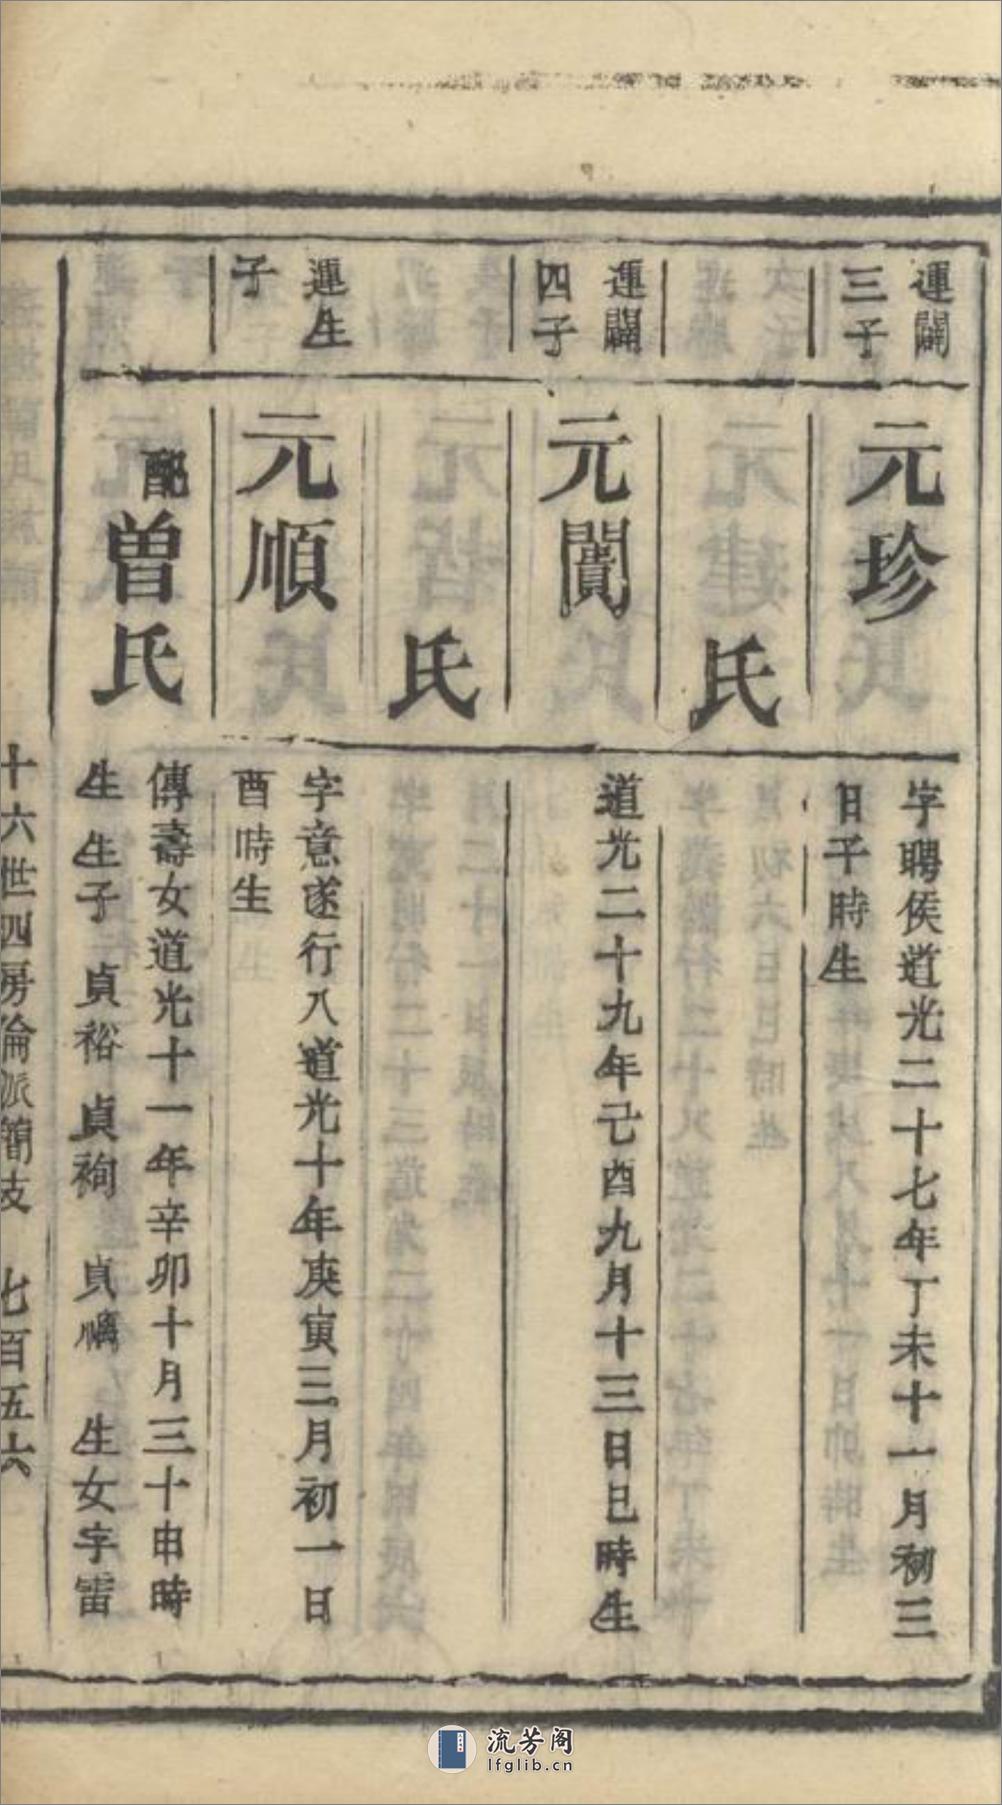 運闢
三子
元珍
字聘侯道光二十七年丁未十一月初三
日子時生
氏
運闢
四子
元闠
道光二十九年己酉九月十三日巳時生
氏
運生
子
元順
字意遂行八道光十年庚寅三月初一日
酉時生
配曾氏
傳壽女道光十一年辛卯十月三十申時
生生子 貞裕 貞袀 貞 生女字雷
十六世四房倫派簡支 七百五六
流芳阁
lfglib.cn